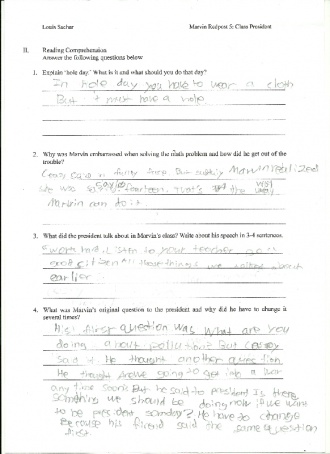 Louis Sachar Marvin Redpost 5: Class President
II. Reading Comprehension
Answer the following questions below
1. Explain 'hole day.' What is it and what should you do that day?
In hole day you have to wear a cloth
But it must have a hole.
2. Why was Marvin embarrassed when solving the math problem and how did he get out of the
trouble?
Casey said in funny face. But suddenly Marvin realized
he was saying fourteen. That's the way
Marvin can do it.
3. What did the president talk about in Marvin's class? Write about his speech in 3-4 sentences.
work hard. Listen to your teacher
good citizen things we talked about
earlier
4. What was Marvin's original question to the president and why did he have to change it
several times?
His first question was what are you
doing about pollution? But Casey
said it. He thought another question
He thought Are we going to get into a war
any time soon? But he said to president Is there
something we should be doing now if we want
to be president someday? He have to change
Because his friend said the same question
first.